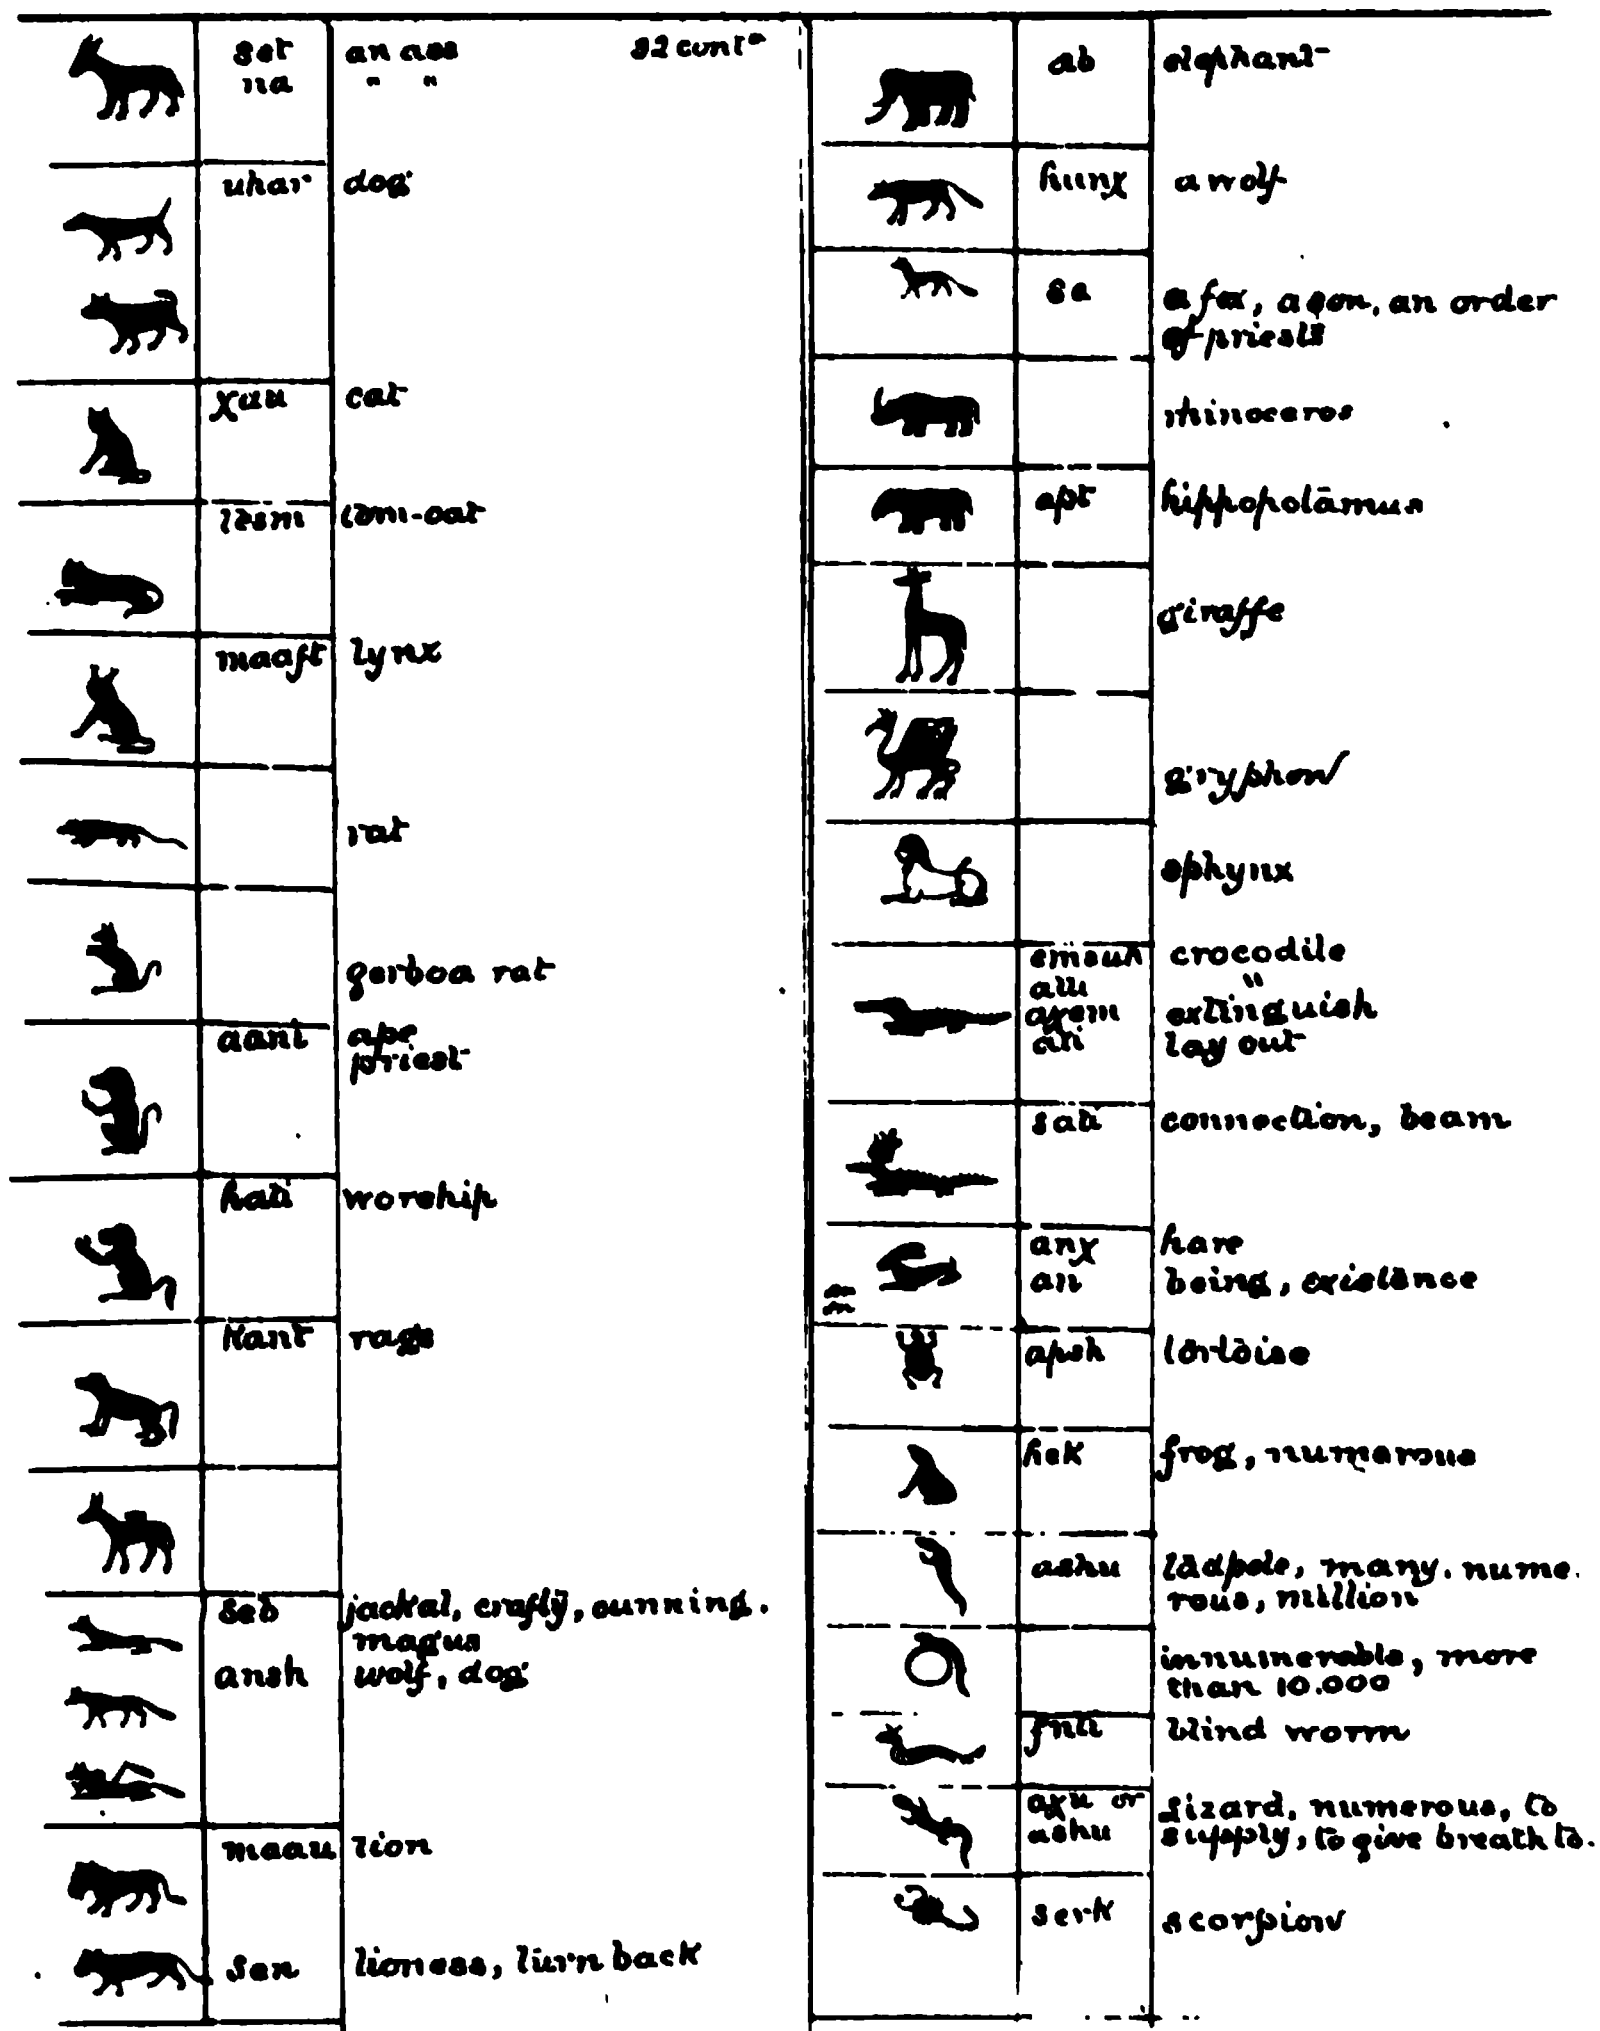 set an ass
na " "
uhar dog
χau cat
tesm tom-cat
maaft lynx
rat
gerboa rat
aani ape
priest
hati worship
Kant rage
seb jackal, crafty, cunning.
magus
ansh wolf, dog
maau lion
sen lioness, turn back
ab elephant
hunχ a wolf
sa a fox, a son, an order
of priests
rhinoceros
apt hippopotamus
giraffe
gryphon
sphynx
emsuh crocodile
"
aχem extinguish
ati lay out
sati connection, beam
anχ hare
an being, existence
apsh tortoise
hek frog, numerous
ashu tadpole, many. nume.
rous, million
innumerable, more
than 10.000
blind worm
aχu or Lizard, numerous, to
ashu supply, to give breath to.
serk scorpion